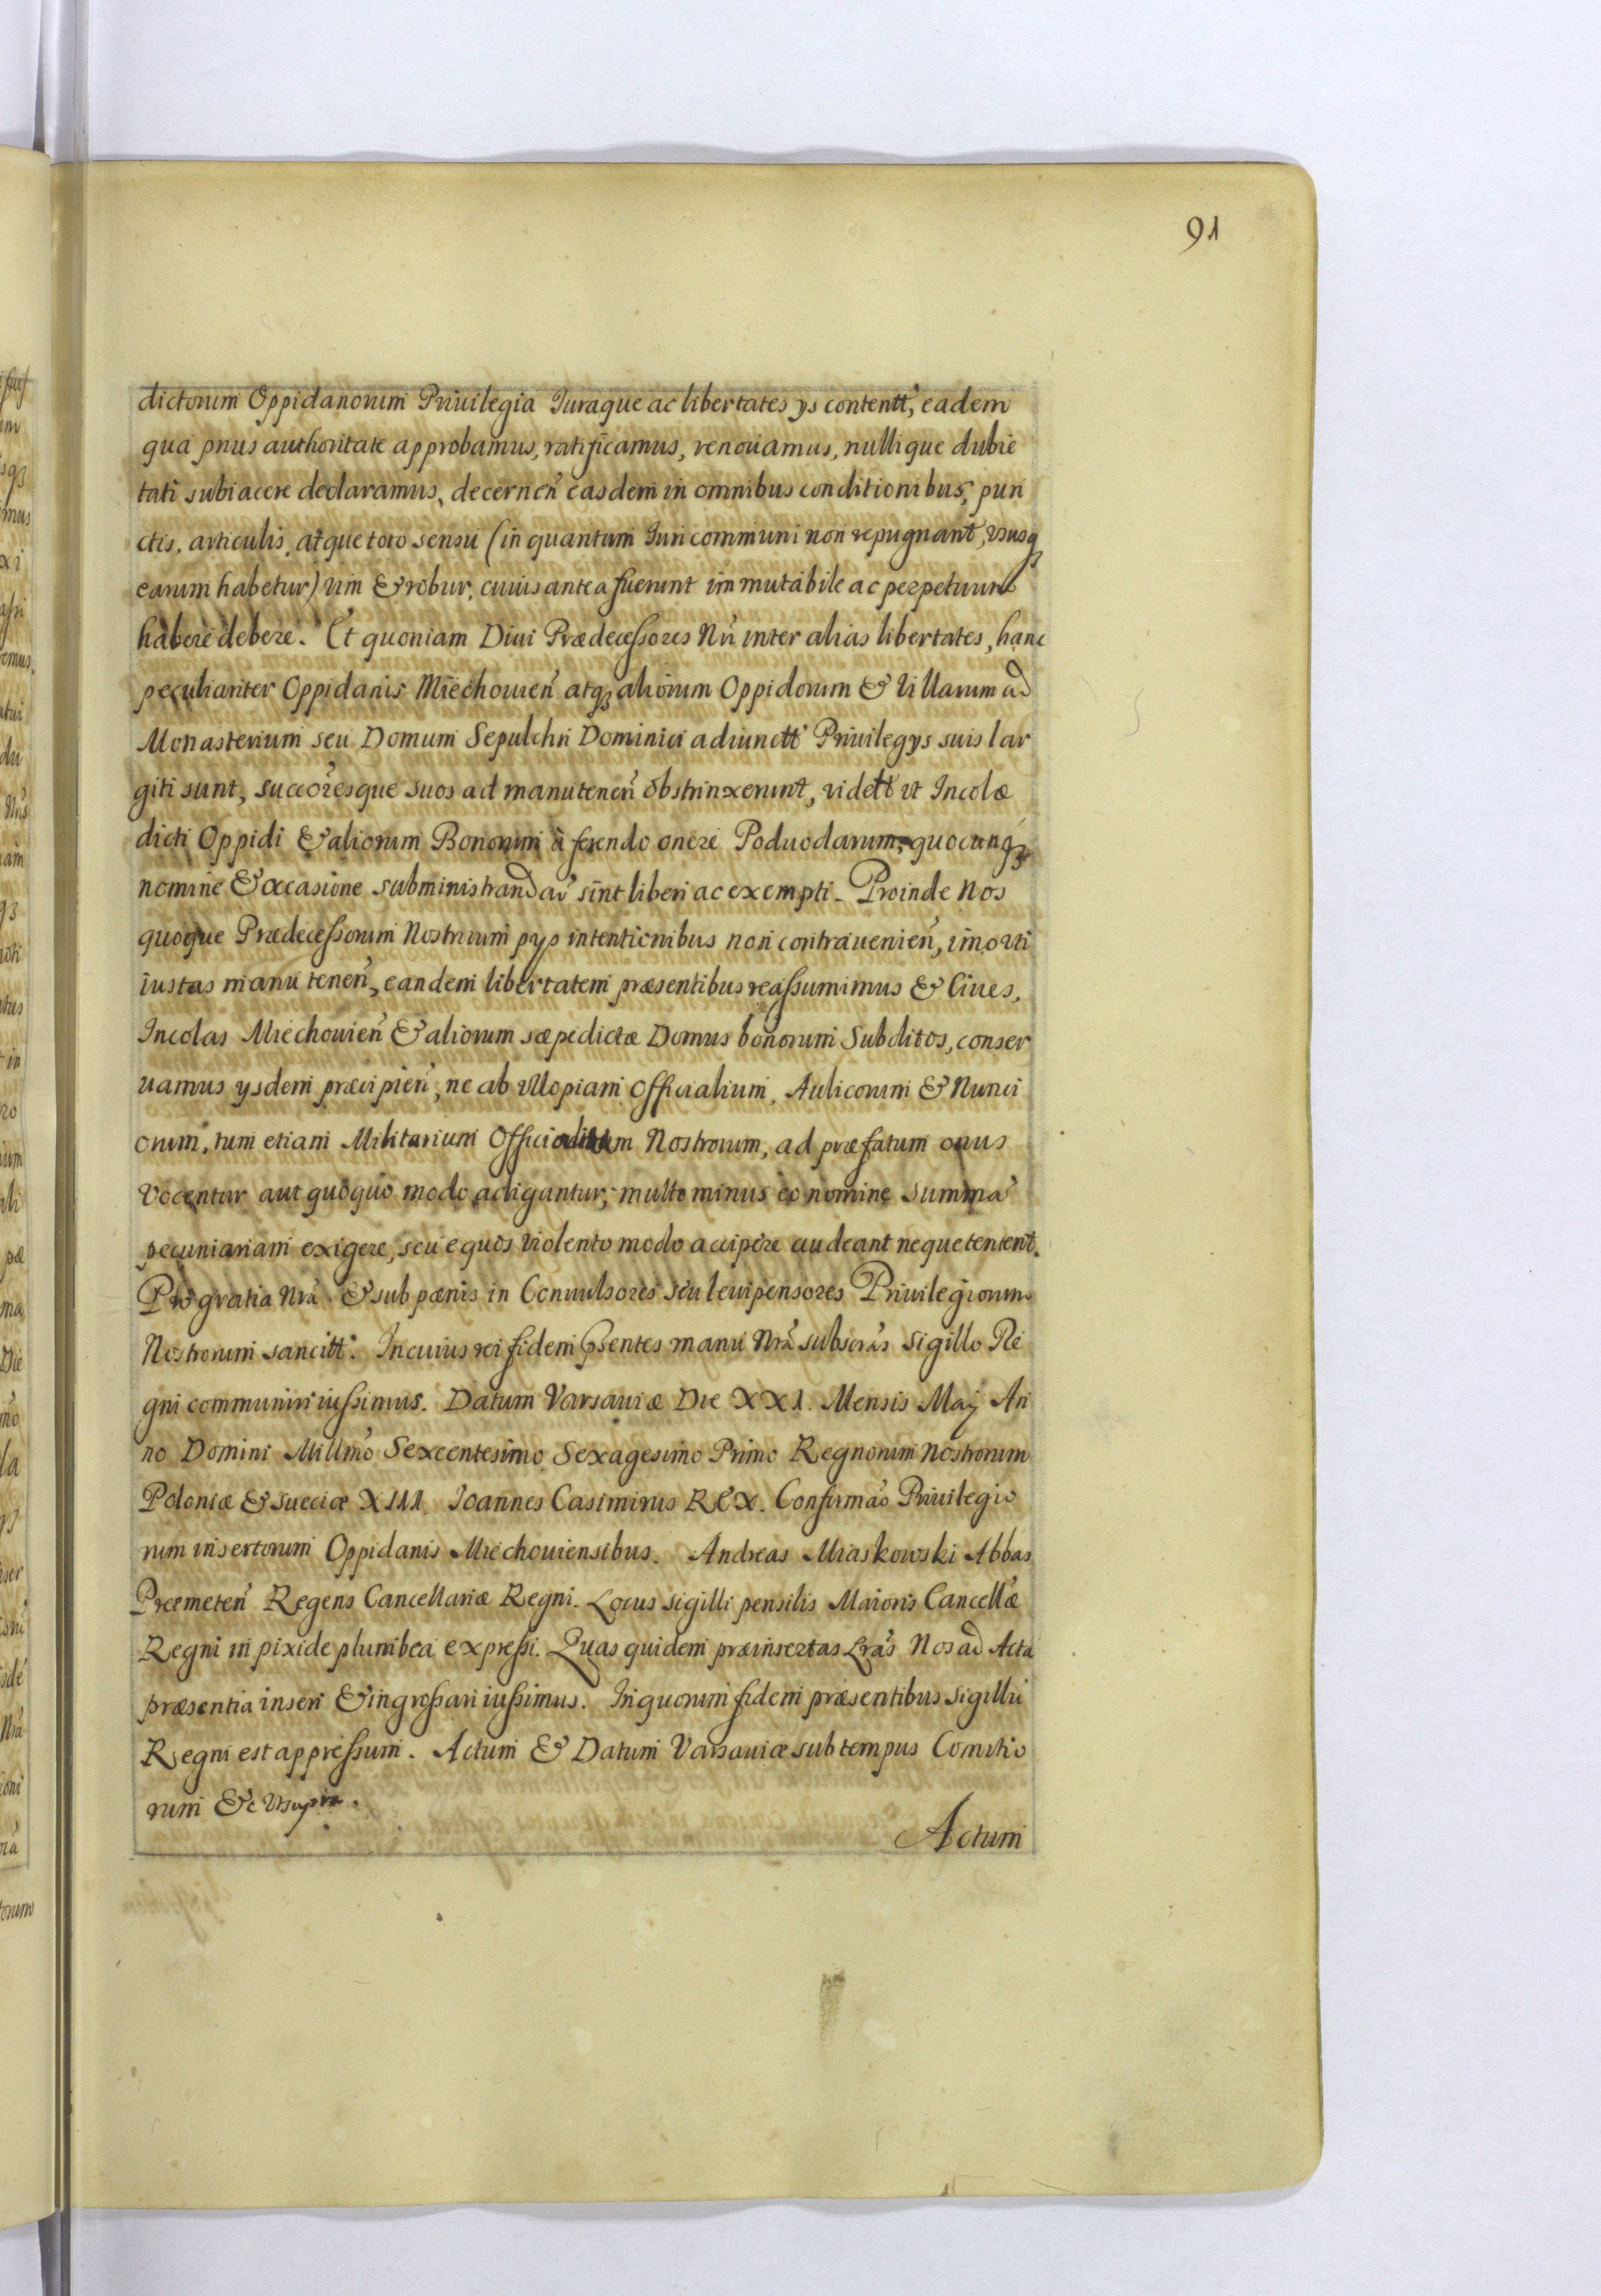 91
dictorum Oppidanorum Priuilegia Iuraque ac libertates ys contentt, eadem
qua pnus authoritate approbamus, ratificamus, renouamus, nullique dubie
tati subiacere declaramus, decernen easdem in omnibus conditionibus, pun
ctis, articulis, atque toto sensu (in quantum Iuri communi non repugnant, vsusqʒ
earum habetur) vim & robur, cuius antea fuerunt immutabile ac perpetuum
habere debere. Et quoniam Diui Prædecessores Nri inter alias libertates, hanc
peculiariter Oppidanis Miechouien atqʒ aliorum Oppidorum & Villarum ad
Monasterium seu Domum Sepulchri Dominici adiunctt Priuilegys suis lar
giti sunt, succoresque suos ad manutenen obstrinxerunt, vidett vt Incolæ
dicti Oppidi & aliorum Bonorum à ferendo onere Poduodarum, quocunqʒ
nomine & occasione subministrandar sint liberi ac exempti. Proinde Nos
quoque Prædecessorum Nostrorum pys intentionibus non contrauenien, imo vti
iustas manu tenen, eandem libertatem præsentibus reassumimus & Ciues,
Incolas Miechouien & aliorum sæpedictæ Domus bonorum Subditos, conser
uamus ysdem præcipien, ne ab vllopiam Officialium, Aulicorum & Nunci
orum, tum etiam Militarium Officialium Nostrorum, ad præfatum onus
vocentur aut quoquo modo adigantur, multo minus eo nomine summa
pecuniariam exigere, seu equos violento modo accipere audeant neque tentent.
Pro gratia Nra & sub pœnis in Conuulsores seu leuipensores Priuilegiorum
Nostrorum sancitt. In cuius rei fidem psentes manu Nra subscras Sigillo Re
gni communiri iussimus. Datum Varsauiæ Die XXI. Mensis Maij An
no Domini Millmo Sexcentesimo Sexagesimo Primo Regnorum Nostrorum
Poloniæ & Sueciæ XIII. Ioannes Casimirus REX. Confirmao Priuilegio
rum insertorum Oppidanis Miechouiensibus. Andreas Miaskowski Abbas
Premeten Regens Cancellariæ Regni. Locus sigilli pensilis Maioris Cancellæ
Regni in pixide plumbea expressi. Quas quidem præinsertas Lras Nos ad Acta
præsentia inseri & ingrossari iussimus. In quorum fidem præsentibus sigillu
Regni est appressum. Actum & Datum Varsauiæ sub tempus Comitio
rum &c vt supra.
Actum